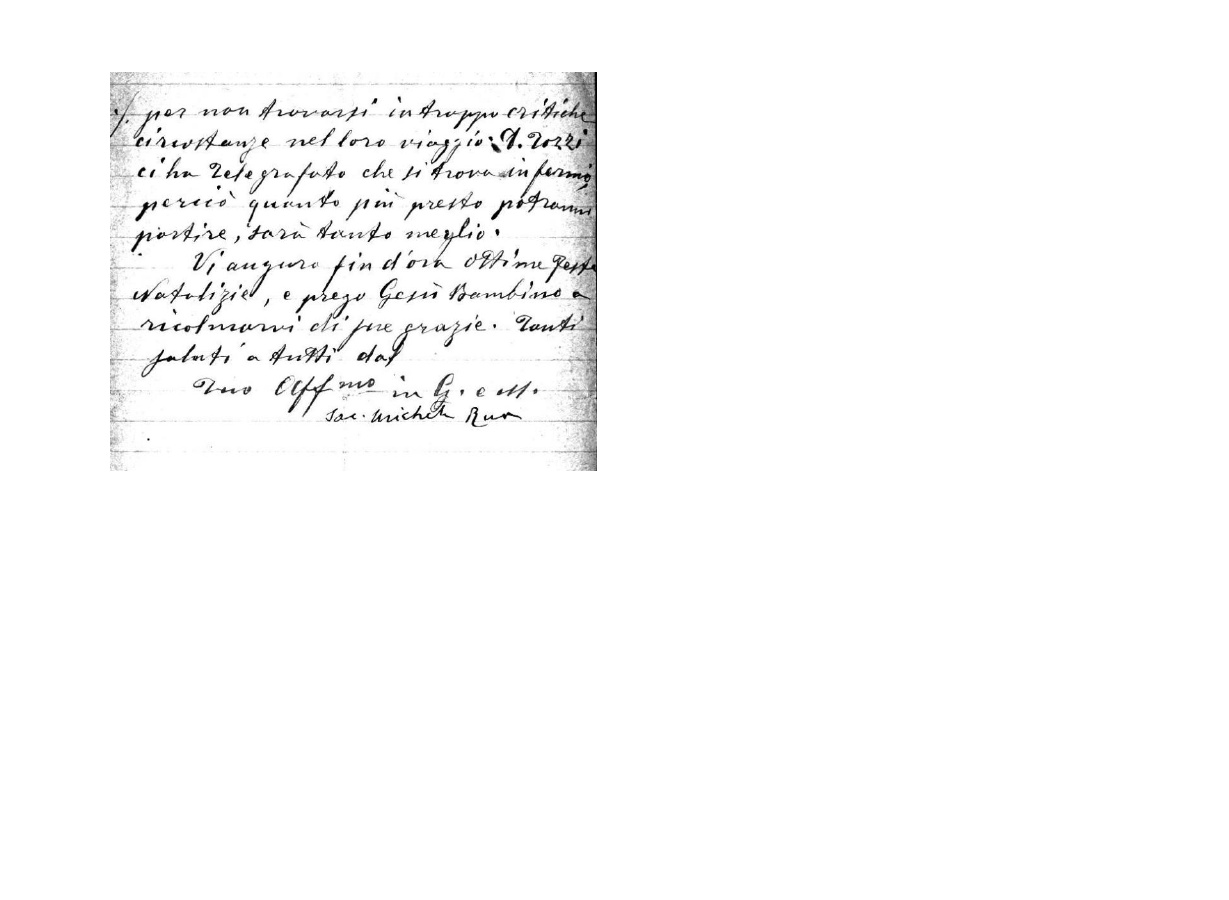 ./. per non trovarsi in troppo critiche
circostanze nel loro viaggio: D. Tozzi
ci ha telegrafato che si trova infermo,
perciò quanto più presto potranno
partire, sarà tanto meglio.
Vi auguro fin d'ora ottime feste
Natalizie, e prego Gesù Bambino a
ricolmarvi di sue grazie. Tanti
saluti a tutti dal
Tuo Aff.mo in G. e M.
Sac. Michele Rua